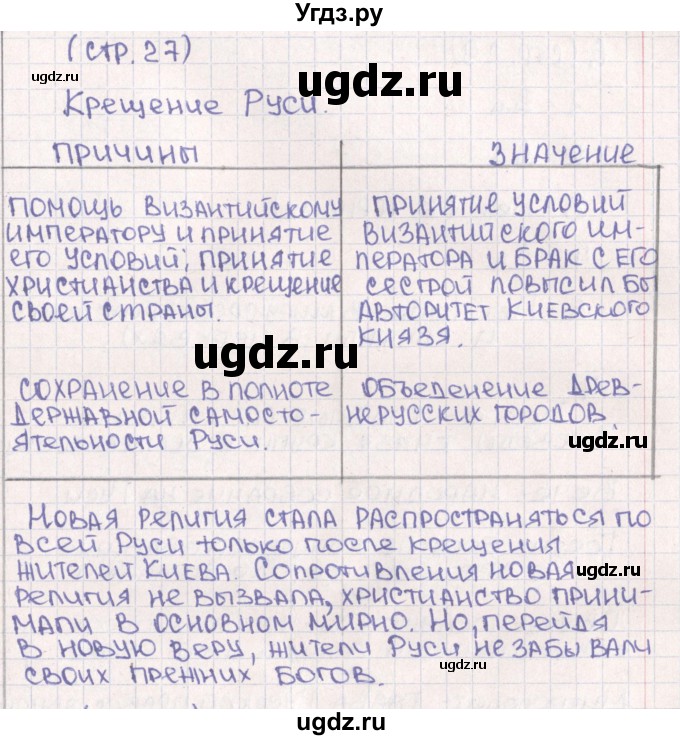 Угдз.ру
(стр. 27)
ugdz.ru
ugdz.ru
Крещение Руси.
ПРИЧИНЫ
ЗНАЧЕНИЕ
ПОМОЩЬ ВИЗАНТИЙСКОМУ
ИМПЕРАТОРУ И ПРИНЯТИЕ
ЕГО УСЛОВИЙ; ПРИНЯТИЕ
ХРИСТИАНСТВА И КРЕЩЕНИЕ
СВОЕЙ СТРАНЫ.
ПРИНЯТИЕ УСЛОВИЙ
ВИЗАНТИЙСКОГО ИМ-
ПЕРАТОРА И БРАК С ЕГО
СЕСТРОЙ ПОВЫСИЛ БЫ
АВТОРИТЕТ КИЕВСКОГО
КНЯЗЯ.
ugdz.ru
ugdz.ru
СОХРАНЕНИЕ В ПОЛНОТЕ
ДЕРЖАВНОЙ САМОСТО-
ЯТЕЛЬНОСТИ РУСИ.
ОБЪЕДЕНЕНИЕ ДРЕВ-
НЕРУССКИХ ГОРОДОВ.
ugdz.ru
НОВАЯ РЕЛИГИЯ СТАЛА РАСПРОСТРАНЯТЬСЯ ПО
ВСЕЙ РУСИ ТОЛЬКО ПОСЛЕ КРЕЩЕНИЯ
ЖИТЕЛЕЙ КИЕВА. СОПРОТИВЛЕНИЯ НОВАЯ
ugdz.ru
РЕЛИГИЯ НЕ ВЫЗВАЛА, ХРИСТИАНСТВО ПРИНИ-
МАЛИ В ОСНОВНОМ МИРНО. НО, ПЕРЕЙДЯ
В НОВУЮ ВЕРУ, ЖИТЕЛИ РУСИ НЕ ЗАБЫВАЛИ
СВОИХ ПРЕЖНИХ БОГОВ.
ugdz.ru
ugdz.ru